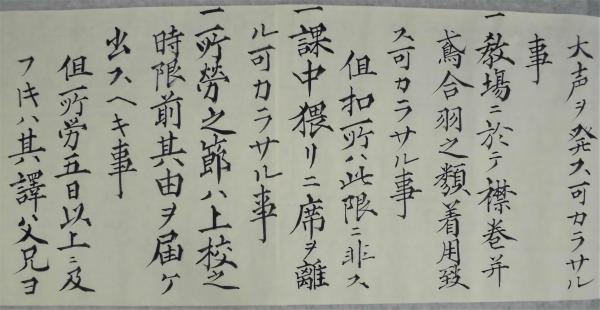 大声ヲ発ス可カラサル
事
一教場ニ於テ襟巻并
鳶合羽之類着用致
ス可カラサル事
但扣所ハ此限ニ非ス
一課中猥リニ席ヲ離
ル可カラサル事
一所労之節ハ上校之
時限前其由ヲ届ケ
出スヘキ事
但所労五日以上ニ及
フ𪜈ハ其譯ハ父兄ヨ